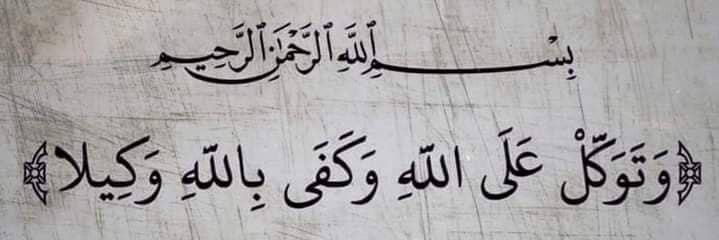 بِسْمِ اللَّهِ الرَّحْمَٰنِ الرَّحِيمِ
﴿وَتَوَكَّلْ عَلَى اللَّهِ وَكَفَى بِاللَّهِ وَكِيلا﴾